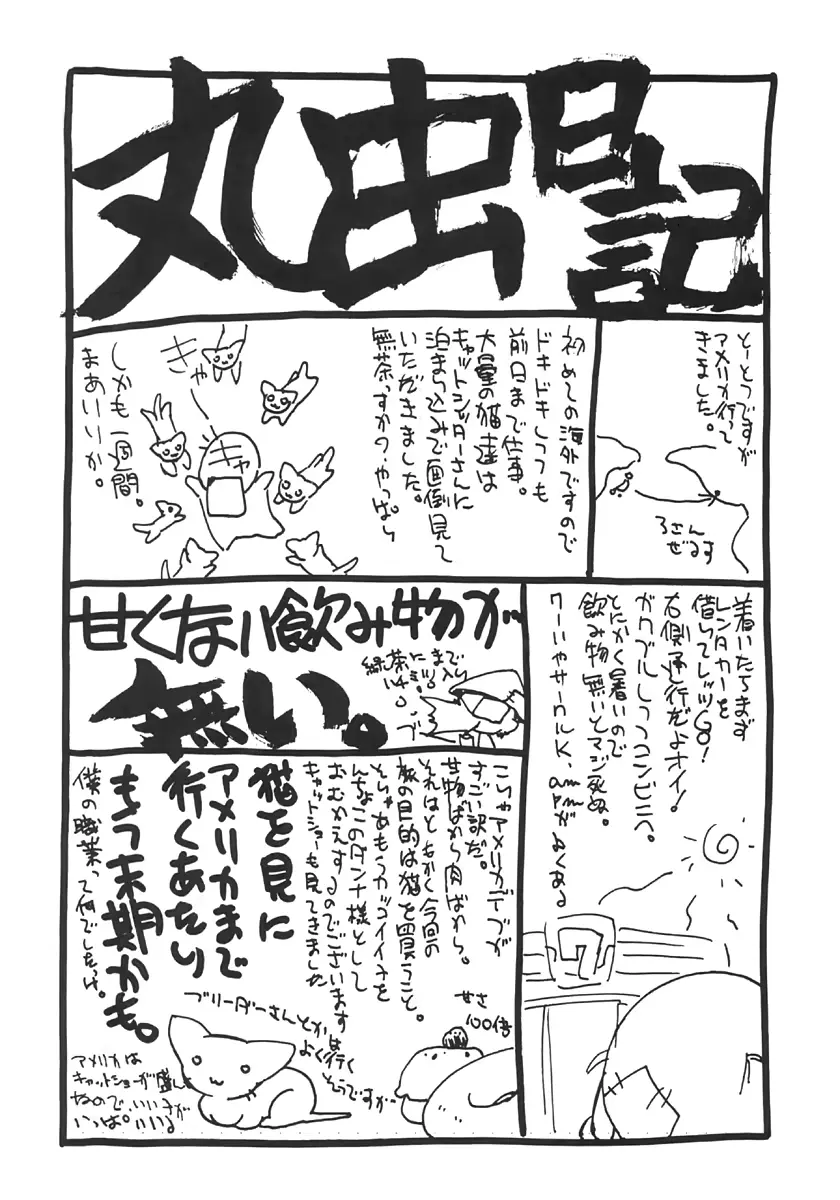 丸虫日記
とーとつですが
アメリカ行って
きました。
ろさん
ぜるす
初めての海外ですので
ドキドキしつつも
前日まで仕事。
大量の猫達は
キャットシッターさんに
泊まり込みで面倒見て
いただきました。
無茶っすか?やっぱり
きゃー
キャ
しかも一週間。
まあいいか。
着いたらまず
レンタカーを
借りてレッツGO!
右側通行だよオイ!
ガクブルしつつコンビニへ。
とにかく暑いので
飲み物無いとマジ死ぬ。
クーいやサークルK、ampmがよくある
7
甘くない飲み物が
無い。
緑茶にまで
ハチミツ入り
こりゃアメリカデブが
すごい訳だ。
甘物ばかり肉ばかり。
それはともかく今回の
旅の目的は猫を買うこと。
そりゃあもうカッコイイ子を
んちょこのダンナ様として
おむかえするのでございます
キャットショーも見てきました
猫を見に
アメリカまで
行くあたり
もう末期かも。
僕の職業って何でしたっけ。
甘さ
100倍
ブリーダーさんとかは
よく行く
そうですが
アメリカは
キャットショーが盛ん
なので、いい子が
いっぱいいる